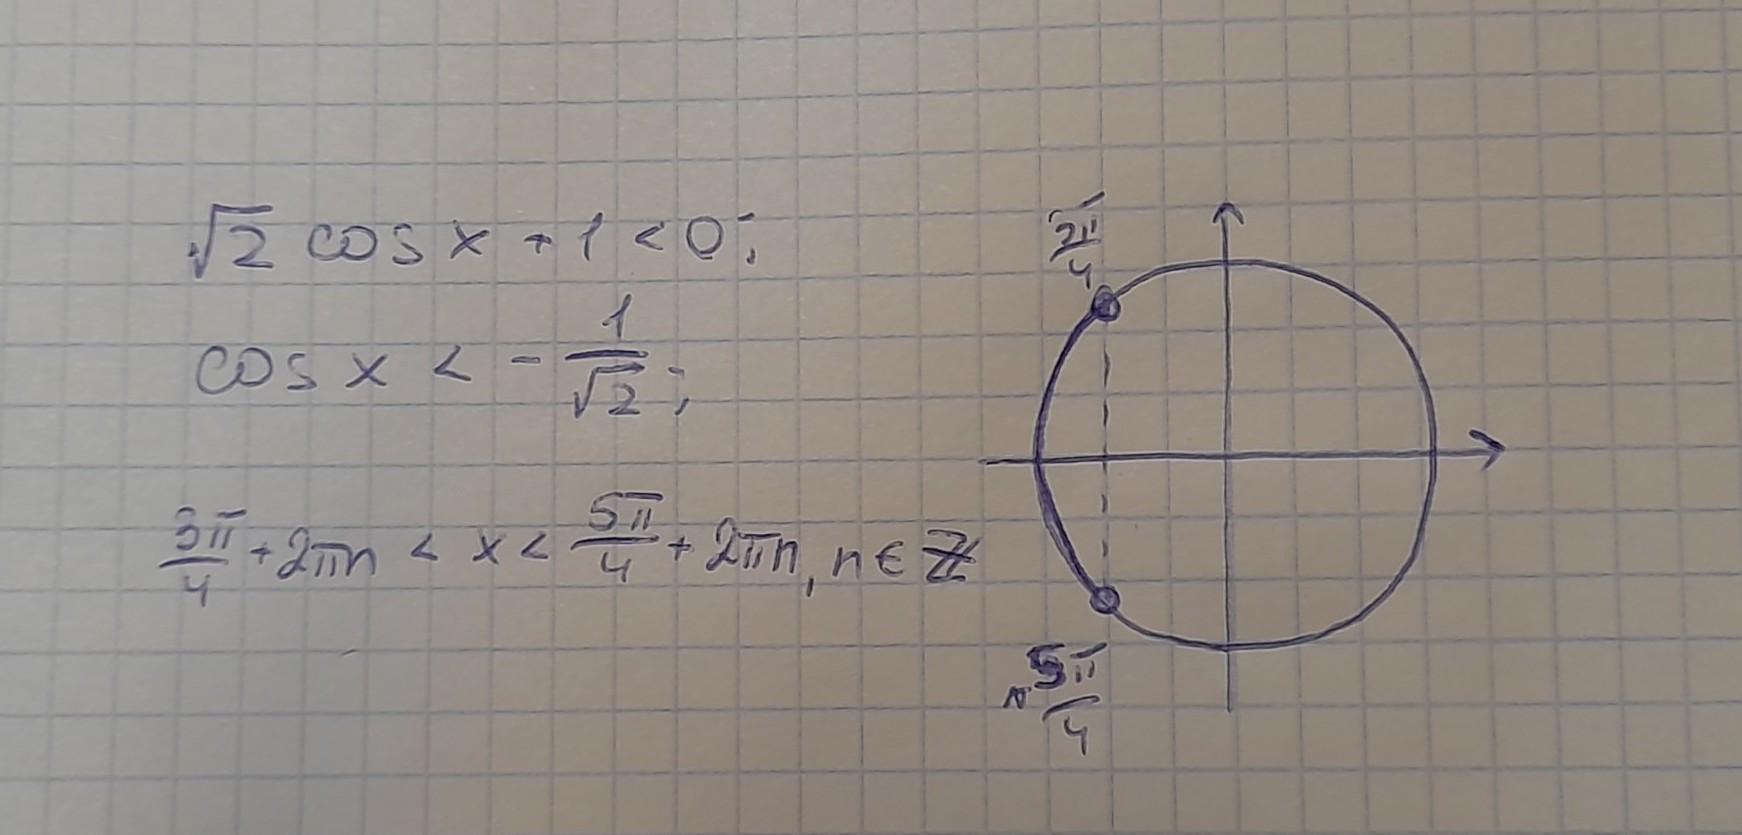 √2 cos x + 1 < 0;
cos x < - 1/√2;
3π/4 + 2πn < x < 5π/4 + 2πn, n ∈ ℤ
3π/4
5π/4